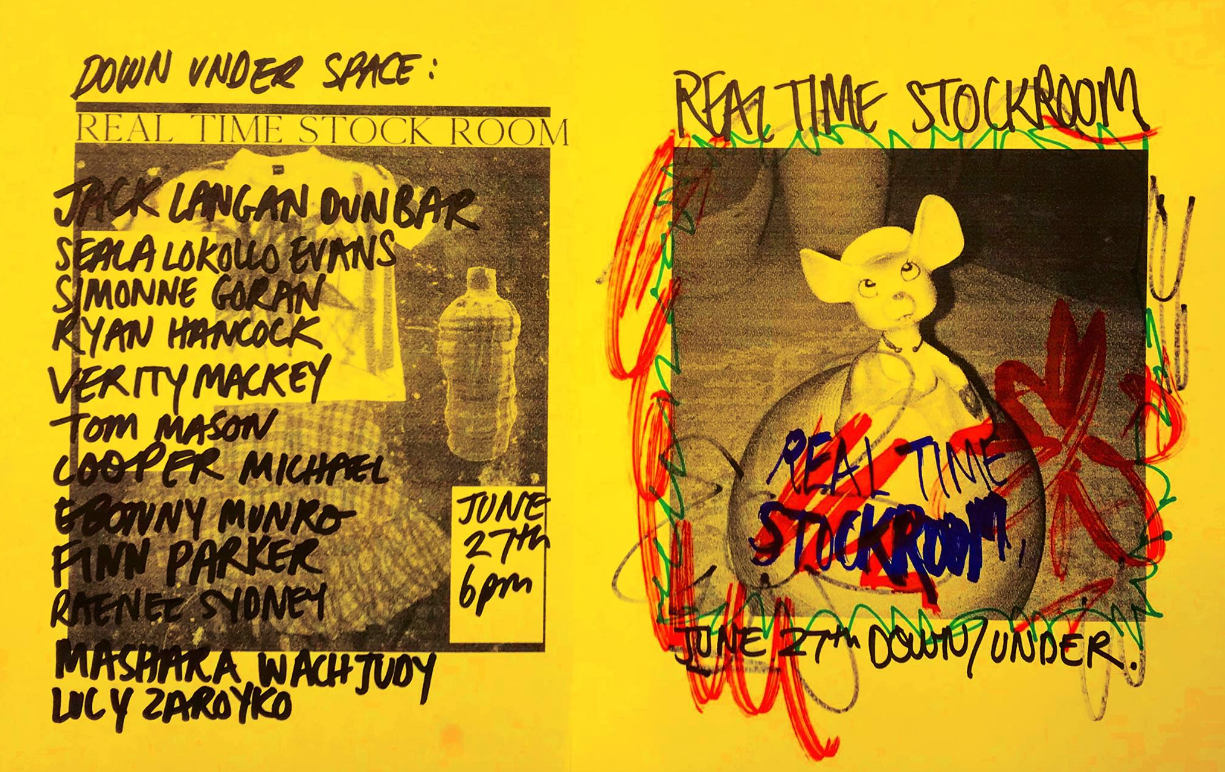 DOWN UNDER SPACE:
REAL TIME STOCK ROOM
JACK LANGAN DUNBAR
SEALA LOKOLLO EVANS
SIMONNE GORAN
RYAN HANCOCK
VERITY MACKEY
TOM MASON
COOPER MICHAEL
EBONNY MUNRO
FINN PARKER
RAENEE SYDNEY
MASHARA WACHJUDY
LUCY ZAROYKO
JUNE
27th
6pm
REAL TIME STOCKROOM
REAL TIME
STOCKROOM
JUNE 27th DOWN/UNDER.